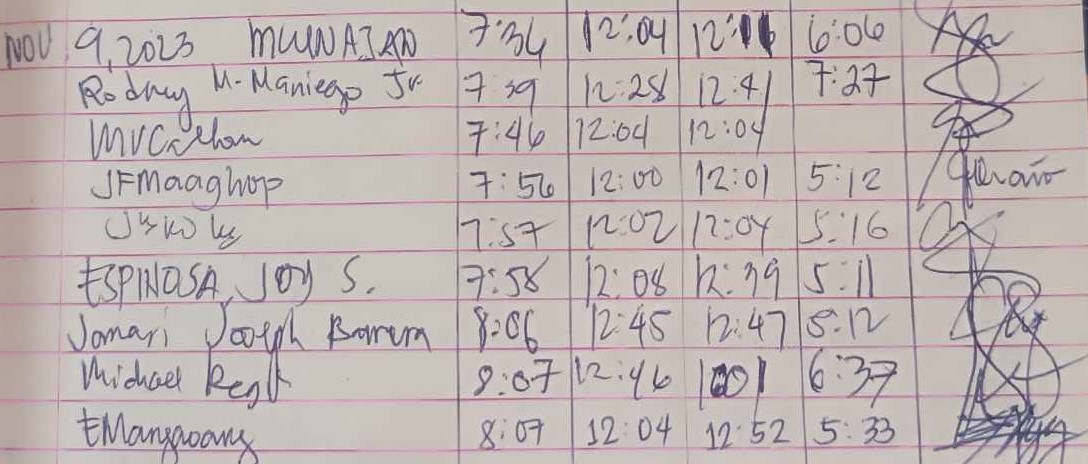 NOV 9, 2023 MUNAJAN 7:34 12:04 12:11 6:06
Rodney M. Maniego Jr. 7:39 12:28 12:41 7:27
7:46 12:04 12:04
JFMaaghop 7:56 12:00 12:01 5:12
7:57 12:02 12:04 5:16
ESPINOSA, JOY S. 7:58 12:08 12:39 5:11
Jomari Joseph Barrera 8:06 12:45 12:47 5:12
Michael 8:07 12:46 1001 6:37
EMangaoang 8:07 12:04 12:52 5:33